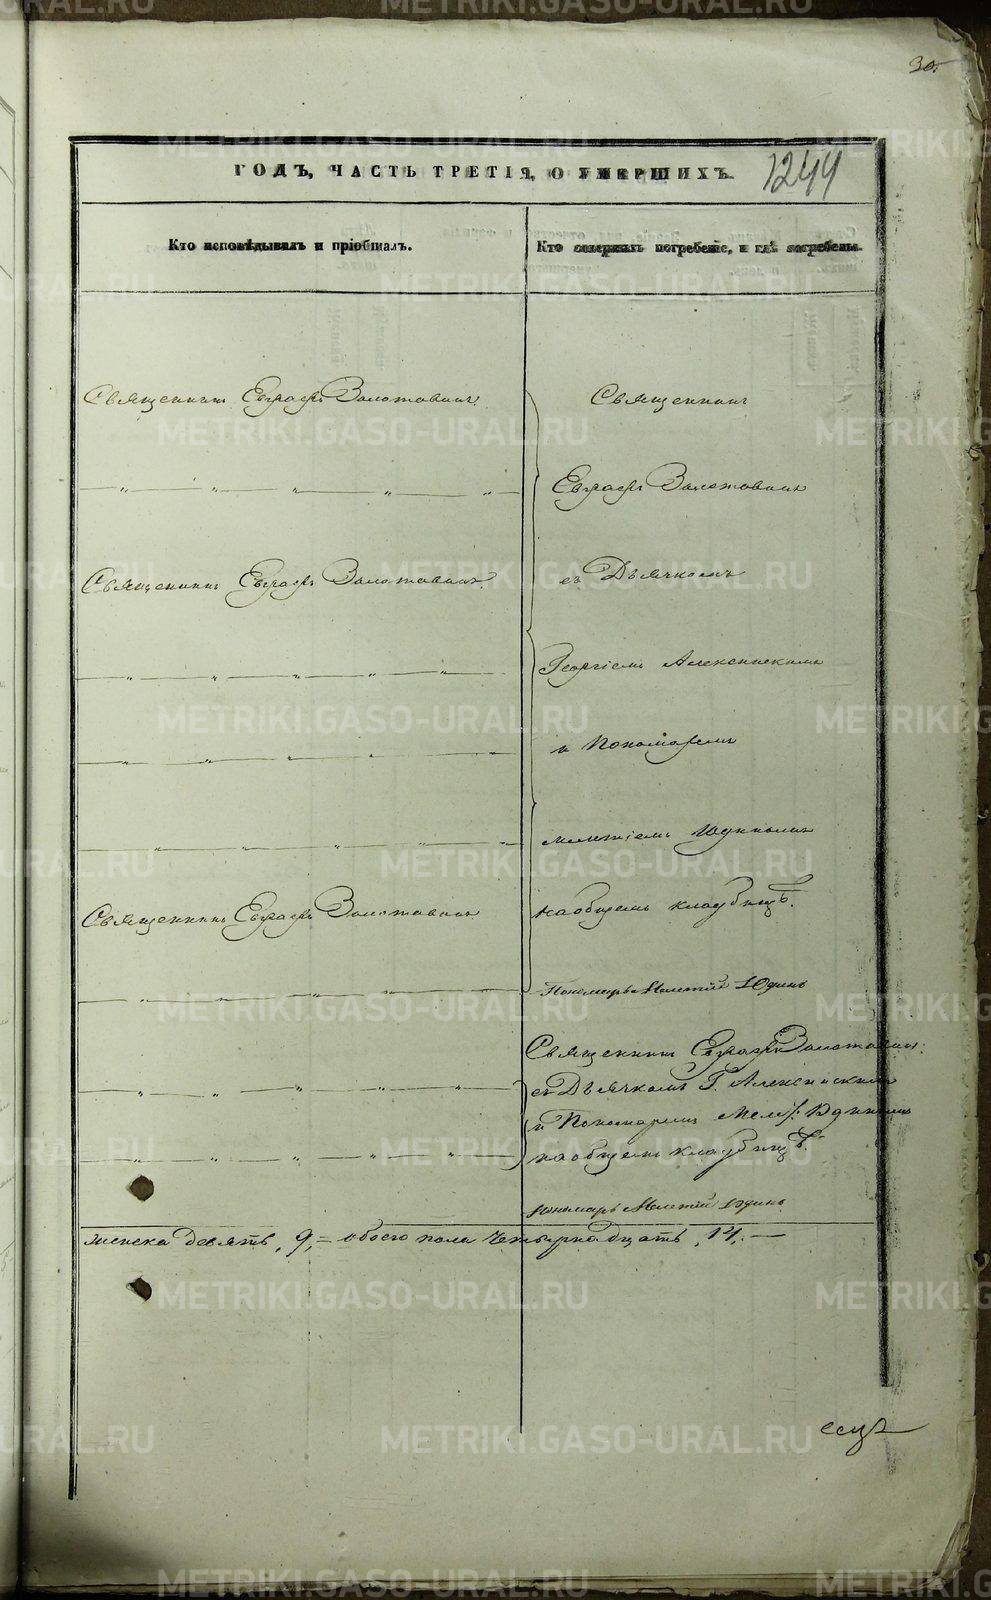 30
ГОДЪ, ЧАСТЬ ТРЕТІЯ, О УМЕРШИХЪ.
1244
Кто исповѣдывалъ и пріобщалъ.
Кто совершалъ погребеніе, и гдѣ погребены.
Священникъ Евграфъ Золотавинъ
Священникъ
Евграфъ Золотавинъ
Священникъ Евграфъ Золотавинъ
съ Дьячкомъ
Георгіемъ Алексинскимъ
и Пономаремъ
Мелетіемъ Юдинымъ
Священникъ Евграфъ Золотавинъ
на общемъ кладбищѣ.
Пономарь Мелетій Юдинъ
Священникъ Евграфъ Золотавинъ
съ Дьячкомъ Г. Алексинскимъ
и Пономаремъ Мел: Юдинымъ
на общемъ кладбищѣ.
Пономарь Мелетій Юдинъ
женска девять, 9, = обоего пола четырнадцать, 14. —
METRIKI.GASO-URAL.RU